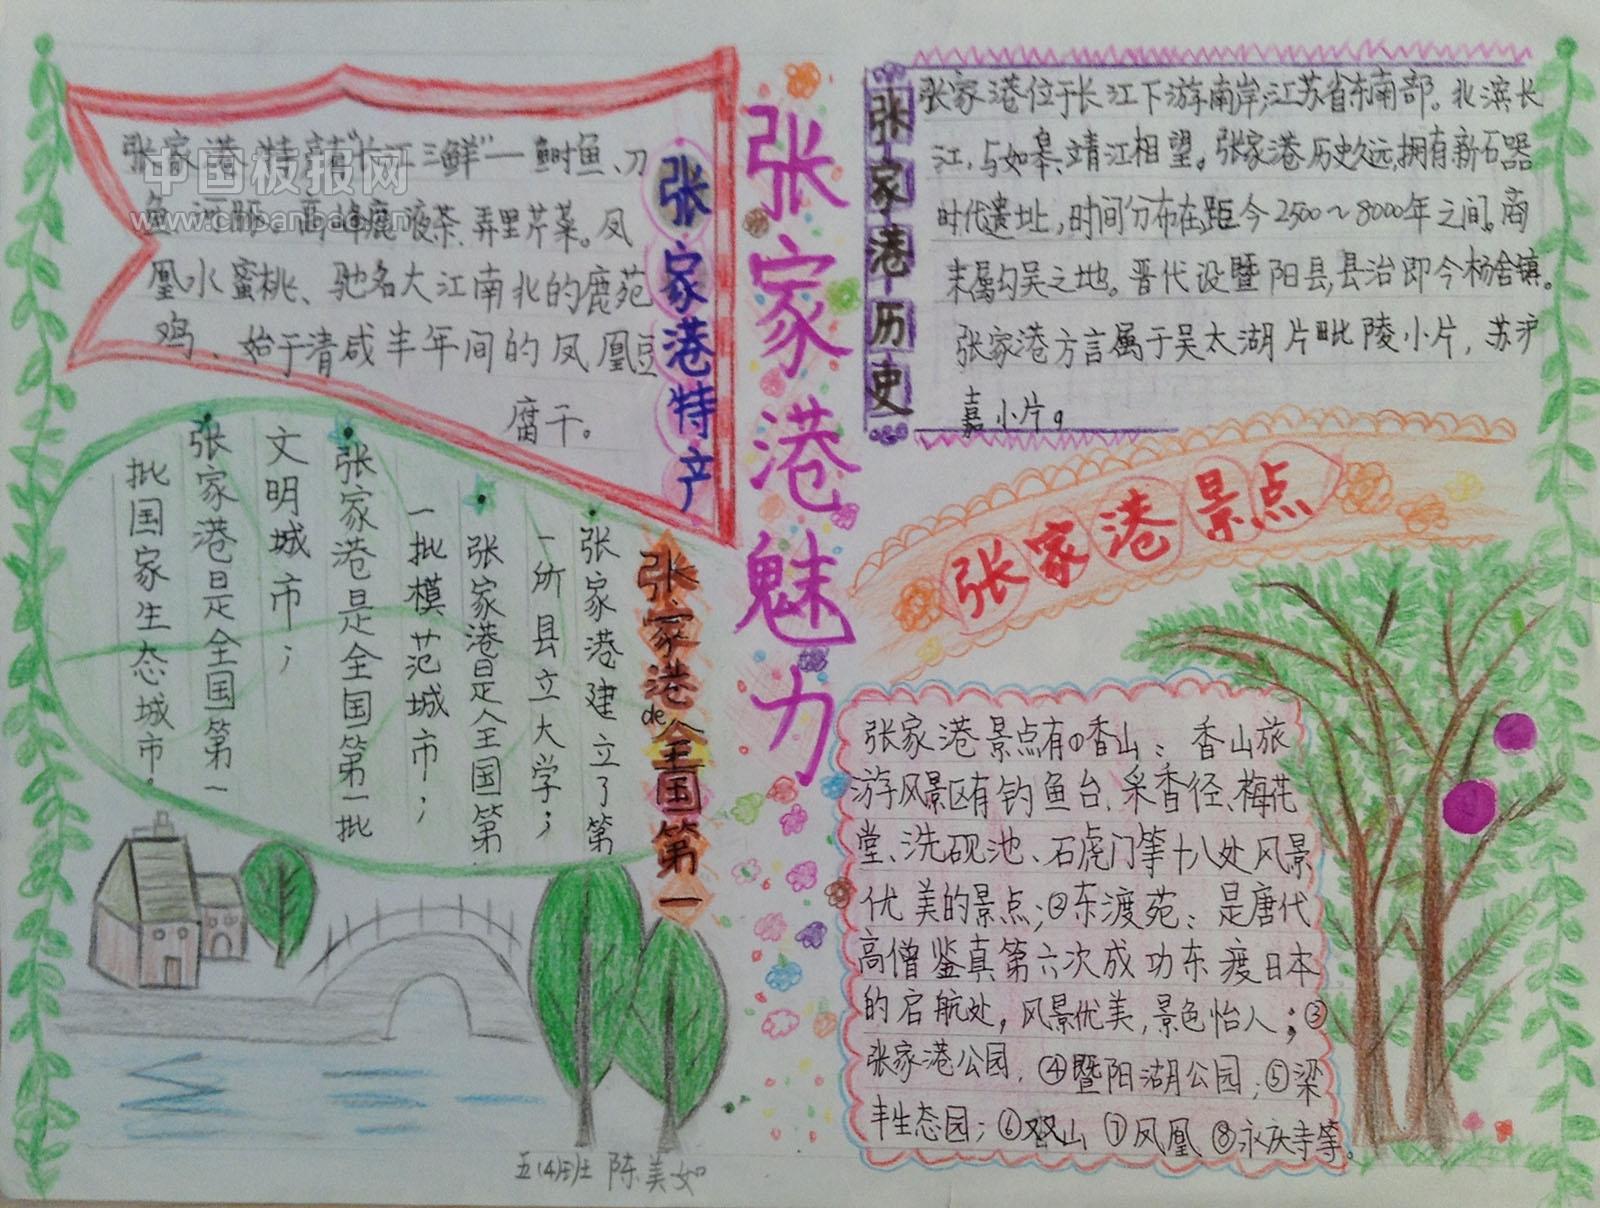 张家港魅力
张家港特产
张家港特产"长江三鲜"—鲥鱼、刀
鱼、河豚。高峰鹿液茶、弄里芹菜。凤
凰水蜜桃、驰名大江南北的鹿苑
鸡、始于清咸丰年间的凤凰豆
腐干。
中国板报网
www.chsanbao.cn
张家港历史
张家港位于长江下游南岸,江苏省东南部。北滨长
江,与如皋、靖江相望。张家港历史久远,拥有新石器
时代遗址,时间分布在距今2500~8000年之间。商
末属勾吴之地。晋代设暨阳县,县治即今杨舍镇。
张家港方言属于吴太湖片毗陵小片,苏沪
嘉小片。
张家港de全国第一
张家港建立了第
一所县立大学;
张家港是全国第
一批模范城市;
张家港是全国第一批
文明城市;
张家港是全国第一
批国家生态城市。
张家港景点
张家港景点有①香山:香山旅
游风景区有钓鱼台、采香径、梅花
堂、洗砚池、石虎门等十八处风景
优美的景点;②东渡苑:是唐代
高僧鉴真第六次成功东渡日本
的启航处,风景优美,景色怡人;③
张家港公园,④暨阳湖公园;⑤梁
丰生态园;⑥双山⑦凤凰⑧永庆寺等。
五(4)班 陈美如